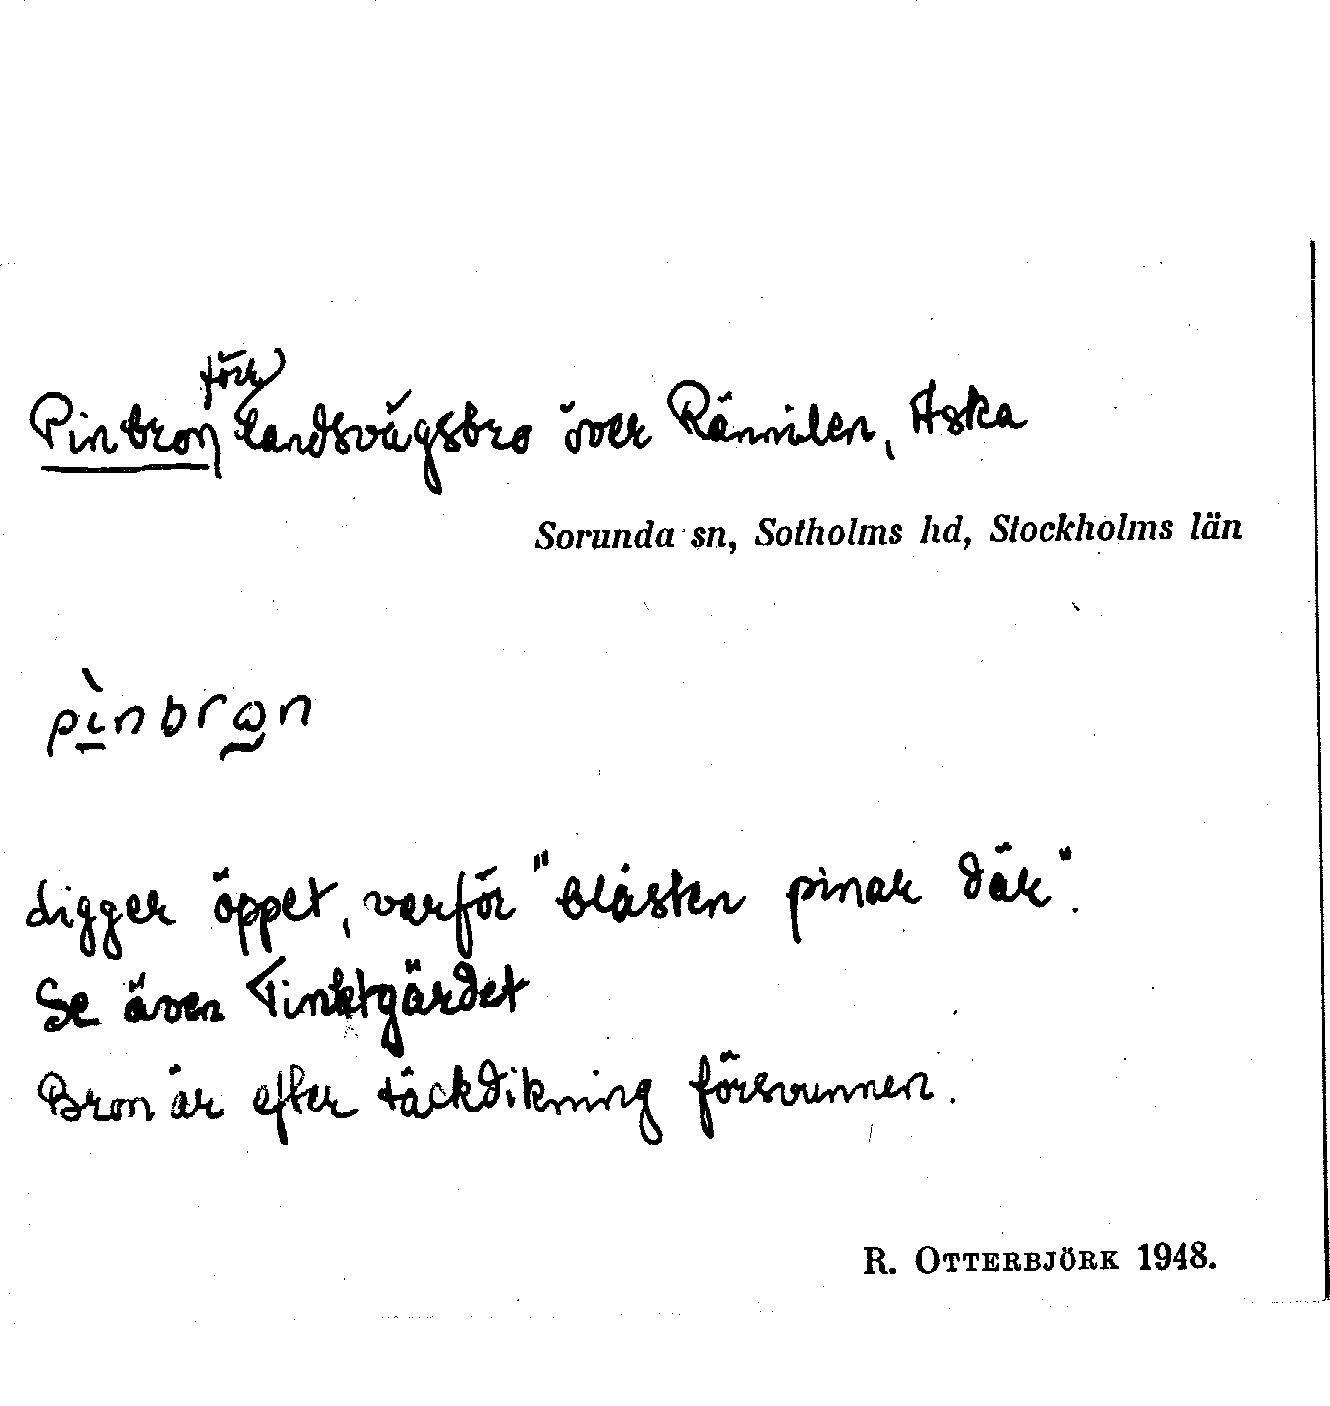 Pinbron, (förr) landsvägsbro över Rännilen, Aska
Sorunda sn, Sotholms hd, Stockholms län
pìnbron
Ligger öppet, varför "blåsten pinar där".
Se även
Bron är efter täckdikning försvunnen.
R. OTTERBJÖRK 1948.